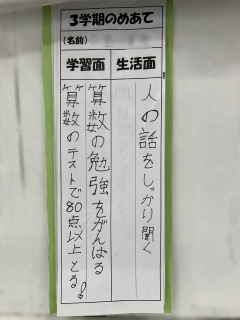 3学期のめあて
(名前)
生活面
人の話をしっかり聞く
学習面
算数の勉強をがんばる
算数のテストで80点以上とる!